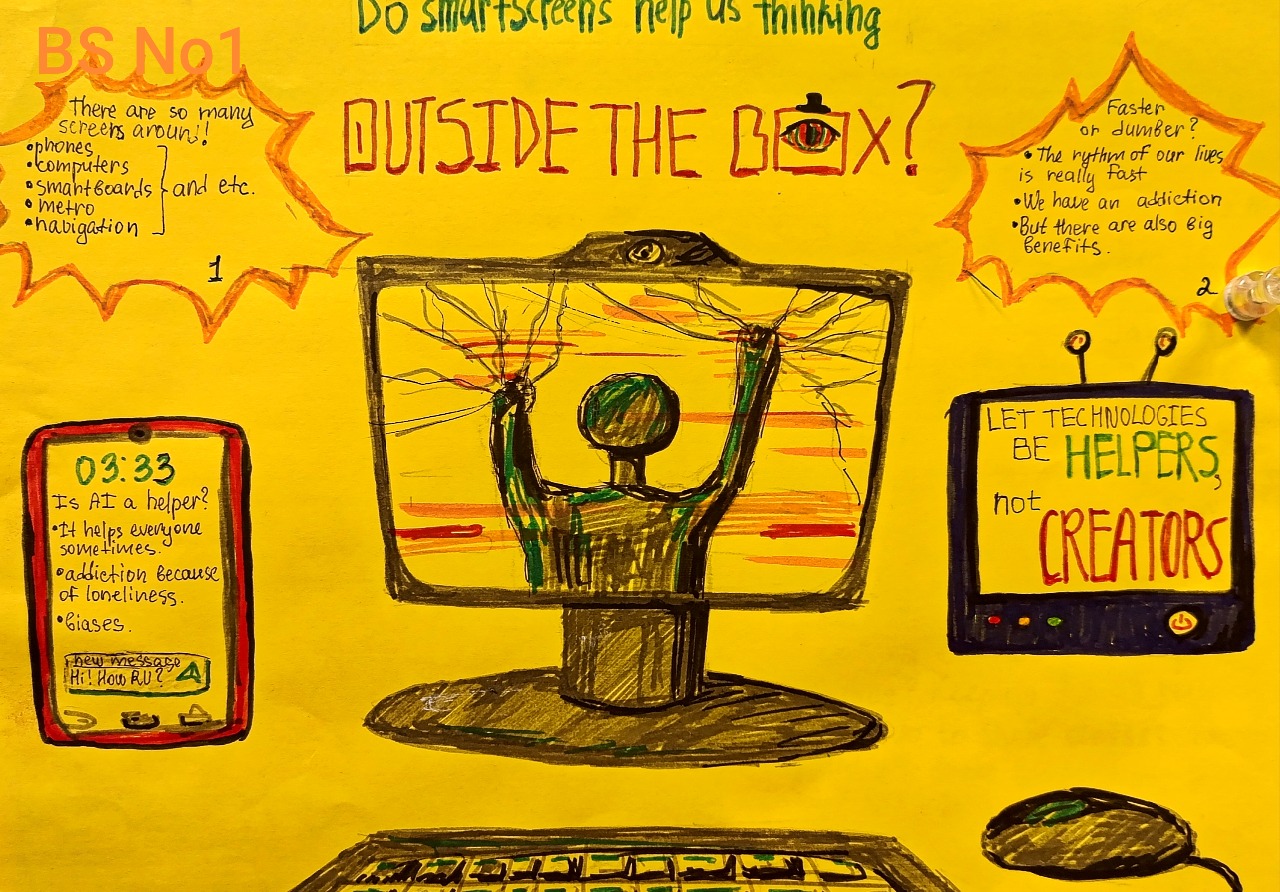 Do smartscreens help us thinking
BS No1
OUTSIDE THE BOX?
There are so many
screens aroun!!
•phones
•computers
•smartboards
•metro
•navigation
and etc.
1
Faster
or dumber?
•The rythm of our lives
is really fast
•We have an addiction
•But there are also big
benefits.
2
03:33
Is AI a helper?
•It helps everyone
sometimes.
•addiction because
of loneliness.
•biases.
new message
Hi! How R U?
LET TECHNOLOGIES
BE HELPERS,
not
CREATORS